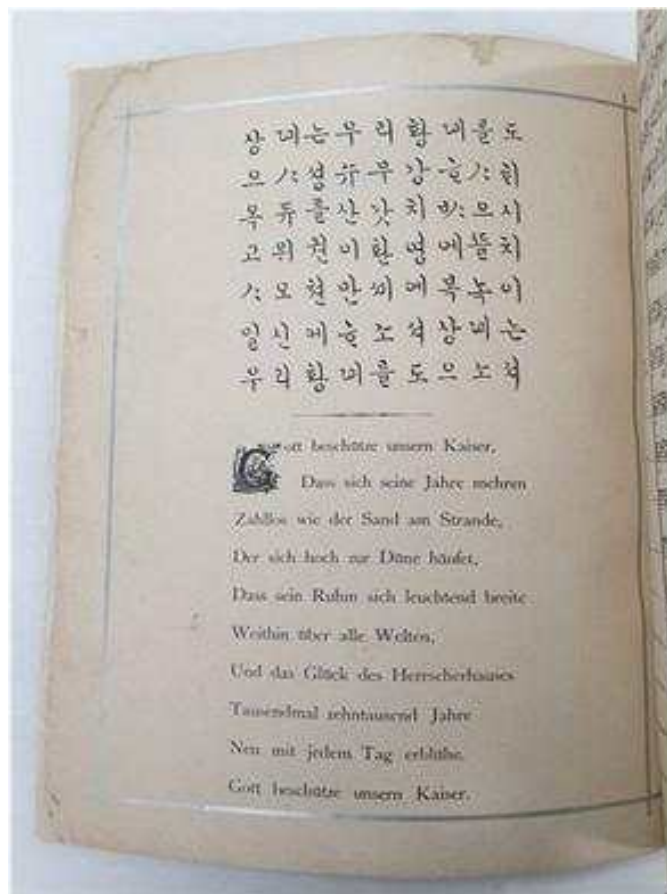 상뎨는우리황뎨를도
으ᄉᆞ셩슈무강ᄒᆞᄉᆞᄒᆡ
옥듀를산갓치ᄡᆞ으시
고위권이환영에ᄯᅥᆯ치
ᄉᆞ오쳔만셰에복녹이
일신케ᄒᆞ소셔상뎨는
우리황뎨를도으소셔
Gott beschütze unsern Kaiser,
Dass sich seine Jahre mehren
Zahllos wie der Sand am Strande,
Der sich hoch zur Düne häufet,
Dass sein Ruhm sich leuchtend breite
Weithin über alle Welten,
Und das Glück des Herrscherhauses
Tausendmal zehntausend Jahre
Neu mit jedem Tag erblühe.
Gott beschütze unsern Kaiser.